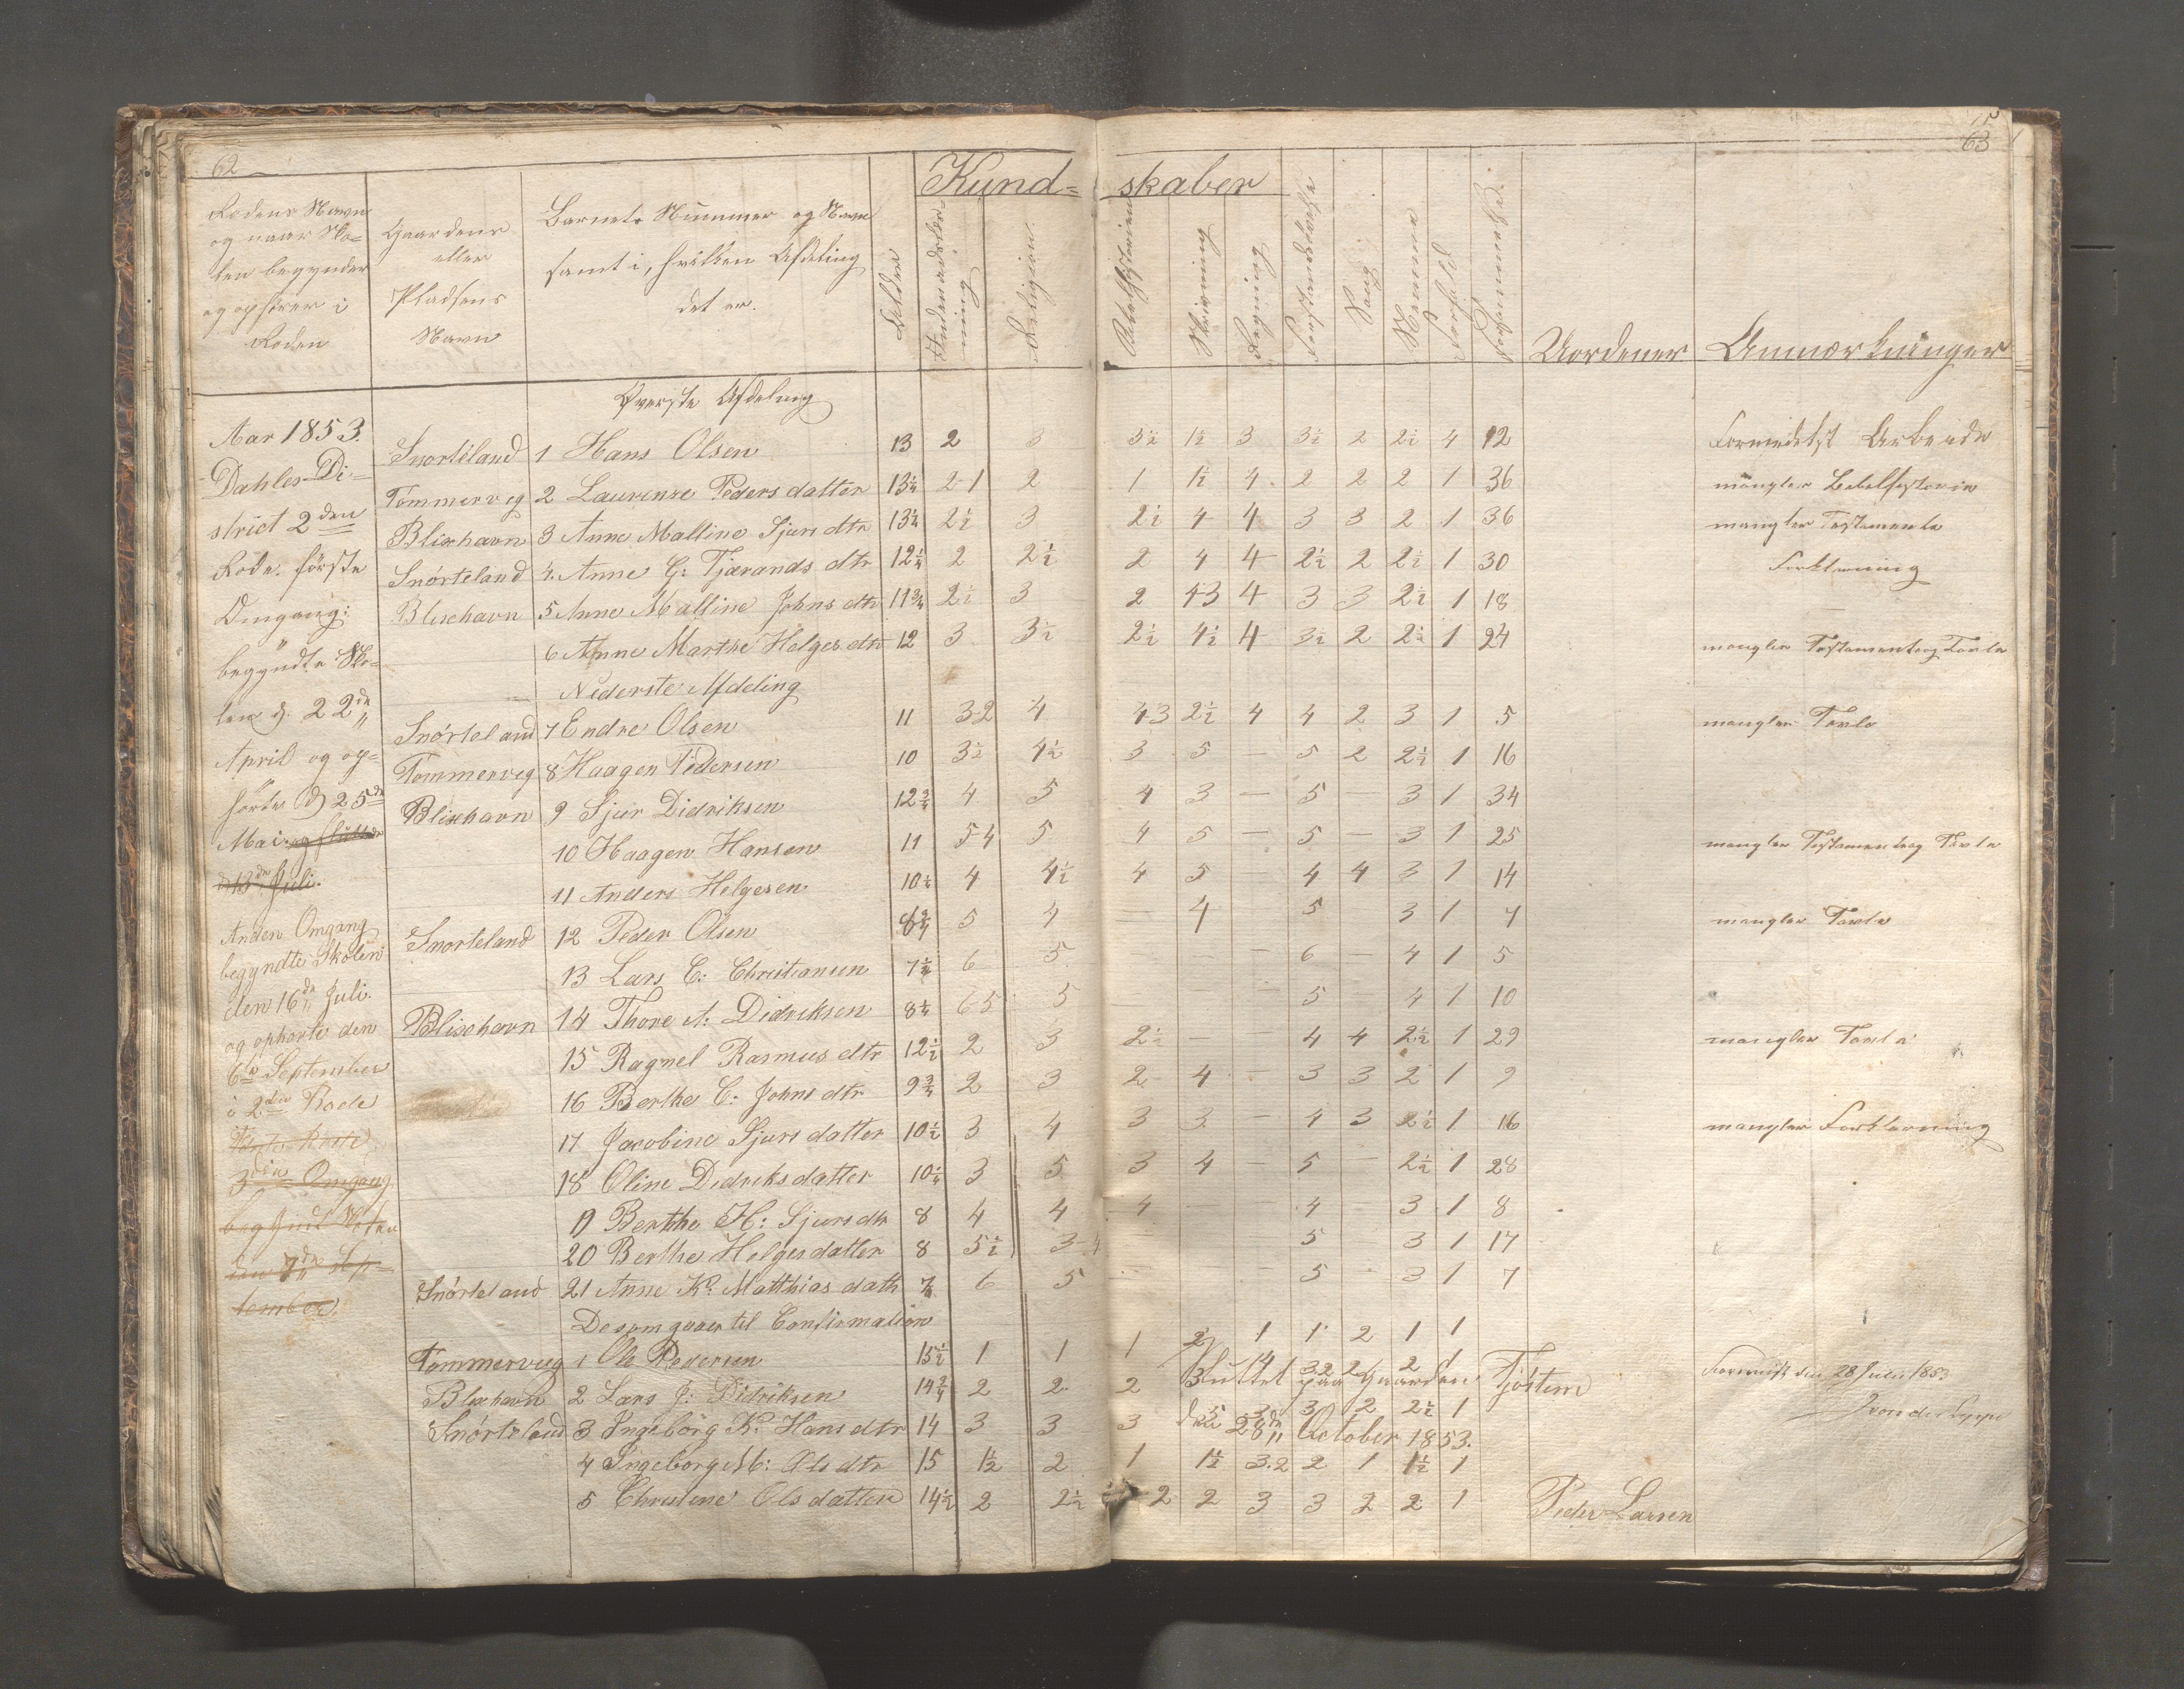 62
63
Kund= skaber
Rodens Navn
og naar Sko=
len begynder
og ophører i
Roden
Gaardens
eller
Pladsens
Navn
Barnets Nummer og Navn
samt i, hvilken Afdeling
det er.
Alder
Indenadslæs-
ning
Religion.
Bibelhistorien
Skrivning
Regning
Forstandsklarhe
Sang.
Nemme
Forhold
Forsømmelse.
Uordener
Anmærkninger
Øverste Afdeling
Aar 1853.
Dahles Di=
strict 2den
Rode. første
Omgang:
begyndte Sko=
len d. 22de
April og op=
hørte d 25de
Mai. og sluttede
d 13de Juli.
Anden Omgang
begyndte Skolen
den 16de Juli.
og ophørte den
6te September
i 2den Rode
3die Omgang
begyndt Skolen
den 7de Sep=
tember.
Snørteland 1 Hans Olsen 13 2 3 3½ 1½ 3 3½ 2 2½ 4 12 Formedelst Arbeide
Tømmervig 2 Laurense Pedersdatter 13¼ 2-1 2 1 1½ 4 2 2 2 1 36 mangler Bibelhistorie
Blixhavn 3 Anne Malline Sjurs dtr 13¼ 2½ 3 2½ 4 4 3 3 2 1 36 mangler Testamente
Snørteland 4. Anne G: Tjærands dtr 12¼ 2 2½ 2 4 4 2½ 2 2½ 1 30 Forklaring
Blixhavn 5 Anne Malline Johns dtr 11¾ 2½ 3 2 43 4 3 3 2½ 1 18
6 Anne Marthe Helges dtr 12 3 3½ 2½ 4½ 4 3½ 2 2½ 1 24 mangler Testament og Tavle
Nederste Afdeling
Snørteland 7 Endre Olsen 11 32 4 43 2½ 4 4 2 3 1 5 mangler Tavle
Tommervig 8 Haagen Pedersen 10 3½ 4½ 3 5 — 5 2 2½ 1 16
Blixhavn 9 Sjur Didriksen 12¾ 4 5 4 3 — 5 — 3 1 34
10 Haagen Hansen 11 5-4 5 4 5 — 5 — 3 1 25 mangler Testament og Tavle
11 Anders Helgesen 10½ 4 4½ 4 5 — 4 4 3 1 14
Snorteland 12 Peder Olsen 8¾ 5 4 — 4 5 3 1 7 mangler Tavle
13 Lars C: Christiansen 7½ 6 5 — — — 6 — 4 1 5
Blixhavn 14 Thore A: Didriksen 8¼ 6-5 5 5 — 4 1 10
15 Ragnel Rasmus dtr 12½ 2 3 2½ — 4 4 2½ 1 29 mangler Tavle
16 Berthe C: Johns dtr 9¾ 2 3 2 4 — 3 3 2 1 9
17 Jacobine Sjurs datter 10½ 3 4 3 3 — 4 3 2½ 1 16 mangler Forklarning
18 Oline Didriksdatter 10¼ 3 5 3 4 — 5 — 2½ 1 28
19 Berthe H: Sjurs dtr 8 4 4 4 — 4 — 3 1 8
20 Berthe Helgesdatter 8 5½ 3-4 5 3 1 17
Snørteland 21 Anne K: Matthias datr 7½ 6 5 5 3 1 7
De som gaaer til Confirmation
Tommervig 1 Ole Pedersen 15½ 1 1 1 2 1 1 2 1 1
Blixhavn 2 Lars J: Didriksen 14¾ 2 2 2 3 4 3.2 2 2 1
Sluttet paa Gaarden Tjøstem
Forevist den 28 Juli 1853
Snørteland 3 Ingeborg K: Hans dtr 14 3 3 3 5 3 3 2 2½ 1
den 28de October 1853.
4 Ingeborg M: Ols dtr 15 1½ 2 1 1½ 3.2 2 1 1½ 1
5 Christene Olsdatter 14½ 2 2½ 2 2 3 3 2 2 1
Peder Larsen